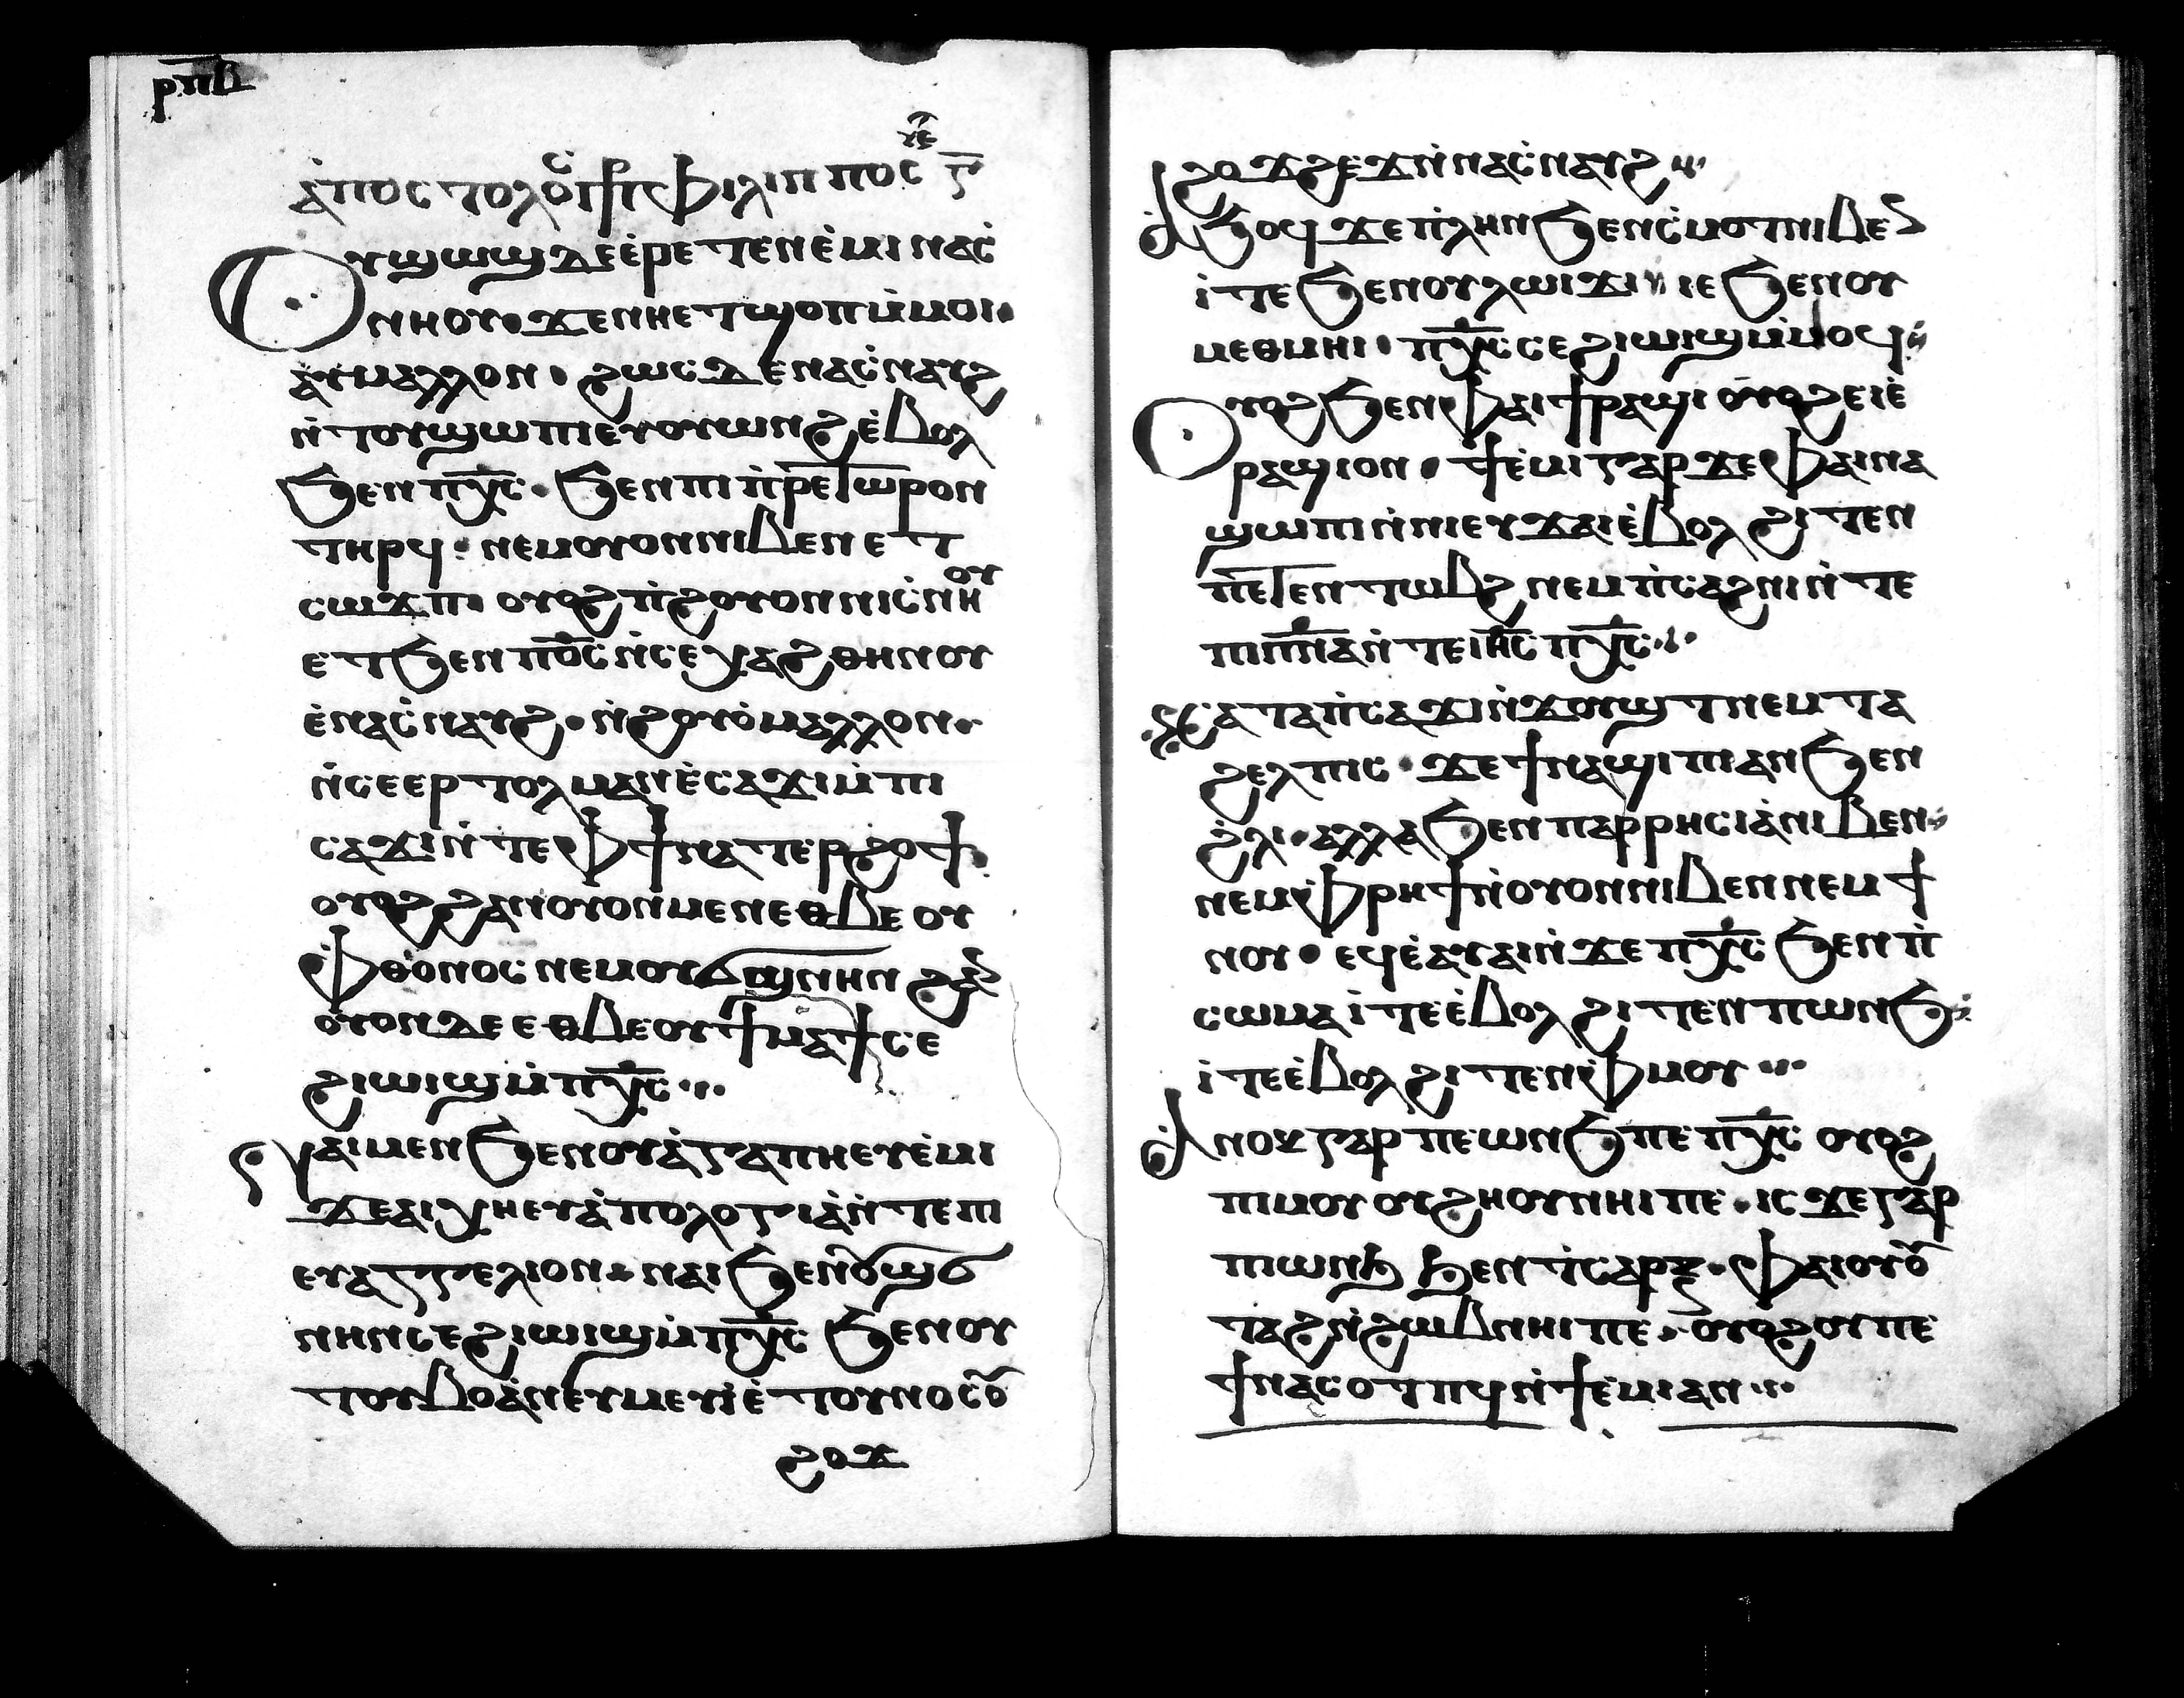 ⲣ̅ⲡ̅ⲃ̅
ⲁ̀ⲡⲟⲥⲧⲟⲗⲟⲥ ⲫⲓⲗⲓⲡⲡⲟⲥ
ⲟⲩⲱϣ ⲇⲉ ⲉ̀ⲣⲉⲧⲉⲛⲉ̀ⲙⲓ ⲛⲁⲥ̀
ⲛⲏⲟⲩ · ϫⲉ ⲛⲏⲉⲧϣⲟⲡ ⲙ̀ⲙⲟⲓ ·
ⲁⲩⲙⲁⲗⲗⲟⲛ · ϩⲱⲥ ⲇⲉ ⲛⲁⲥ̀ⲛⲁⲩϩ
ⲛ̀ⲧⲟⲩϣⲱⲡⲓ ⲉⲩⲟⲩⲱⲛϩ ⲉ̀ⲃⲟⲗ
ϧⲉⲛ ⲡⲭ̅ⲥ̅ · ϧⲉⲛ ⲡⲓⲡ̀ⲣⲉⲧⲱⲣⲟⲛ
ⲧⲏⲣϥ · ⲛⲉⲙ ⲟⲩⲟⲛ ⲛⲓⲃⲉⲛ ⲉⲧ
ⲥⲱϫⲡ · ⲟⲩⲟϩ ⲡ̀ϩⲟⲩⲟ ⲛⲛⲓⲥ̀ⲛⲏⲟⲩ
ⲉⲧϧⲉⲛ ⲡⲟ̅ⲥ̅ ⲛ̀ⲥⲉⲭⲁϩⲑⲏⲛⲟⲩ
ⲉ̀ⲛⲁⲥ̀ⲛⲁⲩϩ · ⲛ̀ϩⲟⲩⲟ̀ ⲙⲁⲗⲗⲟⲛ ·
ⲛ̀ⲥⲉⲉⲣⲧⲟⲗⲙⲁⲛ ⲉ̀ⲥⲁϫⲓ ⲙ̀ⲡⲓ
ⲥⲁϫⲓ ⲛ̀ⲧⲉ ⲫϯ ⲛⲁⲧⲉⲣϩⲟϯ ·
ⲟⲩⲟϩ ϩⲁⲛⲟⲩⲟⲛ ⲙⲉⲛ ⲉⲑⲃⲉ ⲟⲩ
ⲫ̀ⲑⲟⲛⲟⲥ ⲛⲉⲙ ⲟⲩϭϣⲛⲏⲛ ϩⲁⲛ
ⲟⲩⲟⲛ ⲇⲉ ⲉⲑⲃⲉ ⲟⲩϯⲙⲁϯ ⲥⲉ
ϩⲓⲱⲓϣ ⲙ̀ⲡⲭ̅ⲥ̅ ···
ϩⲁⲓ ⲙⲉⲛ ϧⲉⲛ ⲟⲩⲁ̀ⲅⲁⲡⲏ ⲉⲩⲉ̀ⲙⲓ
ϫⲉ ⲁⲓⲭⲏ ⲉⲩⲁ̀ⲡⲟⲗⲟⲅⲓⲁ ⲛ̀ⲧⲉ ⲡⲓ
ⲉⲩⲁⲅⲅⲉⲗⲓⲟⲛ · ⲛⲁⲓ ϧⲉⲛ ⲟⲩϣϭ
ⲛⲏⲛ ⲥⲉϩⲓⲱⲓϣ ⲙ̀ⲡⲭ̅ⲥ̅ ϧⲉⲛ ⲟⲩ
ⲧⲟⲩⲃⲟ ⲁⲛ ⲉⲩⲙⲉⲩⲓ̀ ⲉ̀ⲧⲟⲩⲛⲟⲥ ⲟⲩ
ϩⲟϫ
ϩⲟϫϩⲉϫ ⲛ̀ⲛⲁⲥ̀ⲛⲁⲩϩ ···
ⲁ̀ϧⲟϥ ϫⲉ ⲡ̀ⲗⲏⲛ ϧⲉⲛ ⲥ̀ⲙⲟⲧ ⲛⲓⲃⲉⲛ
ⲓ̀ⲧⲉ ϧⲉⲛ ⲟⲩⲗⲱⲓϫⲓ ⲓⲉ ϧⲉⲛ ⲟⲩ
ⲙⲉⲑⲙⲏⲓ · ⲡⲭ̅ⲥ̅ ⲥⲉϩⲓⲱⲓϣ ⲙ̀ⲙⲟϥ
ⲟⲩⲟϩ ϧⲉⲛ ⲫⲁⲓ ϯⲣⲁϣⲓ ⲟⲩⲟϩ ⲉⲓⲉ̀
ⲣⲁϣⲓ ⲟⲛ · ϯⲉ̀ⲙⲓ ⲅⲁⲣ ϫⲉ ⲫⲁⲓ ⲛⲁ
ϣⲱⲡⲓ ⲛ̀ⲛⲓ ⲉⲩϫⲁⲓ ⲉ̀ⲃⲟⲗ ϩⲓⲧⲉⲛ
ⲡⲉⲧⲉⲛⲧⲱⲃϩ ⲛⲉⲙ ⲡ̀ⲥⲁϩⲛⲓ ⲛ̀ⲧⲉ
ⲡⲓⲡ̅ⲛ̅ⲁ̅ ⲛ̀ⲧⲉ ⲓⲏ̅ⲥ̅ ⲡⲭ̅ⲥ̅ ···
ⲕⲁⲧⲁ ⲡ̀ⲥⲁϫⲓⲛ̀ϫⲟⲩϣⲧ ⲛⲉⲙ ⲧⲁ
ϩⲉⲗⲡⲓⲥ · ϫⲉ ϯⲛⲁϣⲓⲡⲓ ⲁⲛ ϧⲉⲛ
ϩ̀ⲗⲓ · ⲁⲗⲗⲁ ϧⲉⲛ ⲡⲁⲣⲣⲏⲥⲓⲁ̀ ⲛⲓⲃⲉⲛ
ⲛⲉⲙ ⲫ̀ⲣⲏϯ ⲛ̀ⲟⲩⲟⲛ ⲛⲓⲃⲉⲛ ⲛⲉⲙ ϯ
ⲛⲟⲩ · ⲉϥⲉ̀ⲁⲓⲁⲓ ⲛ̀ϫⲉ ⲡⲭ̅ⲥ̅ ϧⲉⲛ ⲡ̀
ⲥⲱⲙⲁ ⲓ̀ⲧⲉ ⲉ̀ⲃⲟⲗ ϩⲓⲧⲉⲛ ⲡⲱⲛϧ
ⲓ̀ⲧⲉ ⲉ̀ⲃⲟⲗ ϩⲓⲧⲉⲛ ⲫ̀ⲙⲟⲩ ···
ⲁ̀ⲛⲟⲕ ⲅⲁⲣ ⲡⲉ ⲱⲛϧ ⲡⲉ ⲡⲭ̅ⲥ̅ ⲟⲩⲟϩ
ⲡⲓⲙⲟⲩ ⲟⲩϩⲏⲟⲩ ⲛⲏⲓ ⲡⲉ · ⲓⲥϫⲉ ⲅⲁⲣ
ⲡⲓⲱⲛϧ ϧⲉⲛ ⲧ̀ⲥⲁⲣⲝ · ⲫⲁⲓ ⲟⲩⲟⲩ
ⲧⲁϩ ⲛ̀ϩⲱⲃ ⲛⲏⲓ ⲡⲉ · ⲟⲩⲟϩ ⲟⲩ ⲡⲉ
ϯⲛⲁⲥⲟⲧⲡϥ ⲛ̀ϯⲉ̀ⲙⲓ ⲁⲛ ···